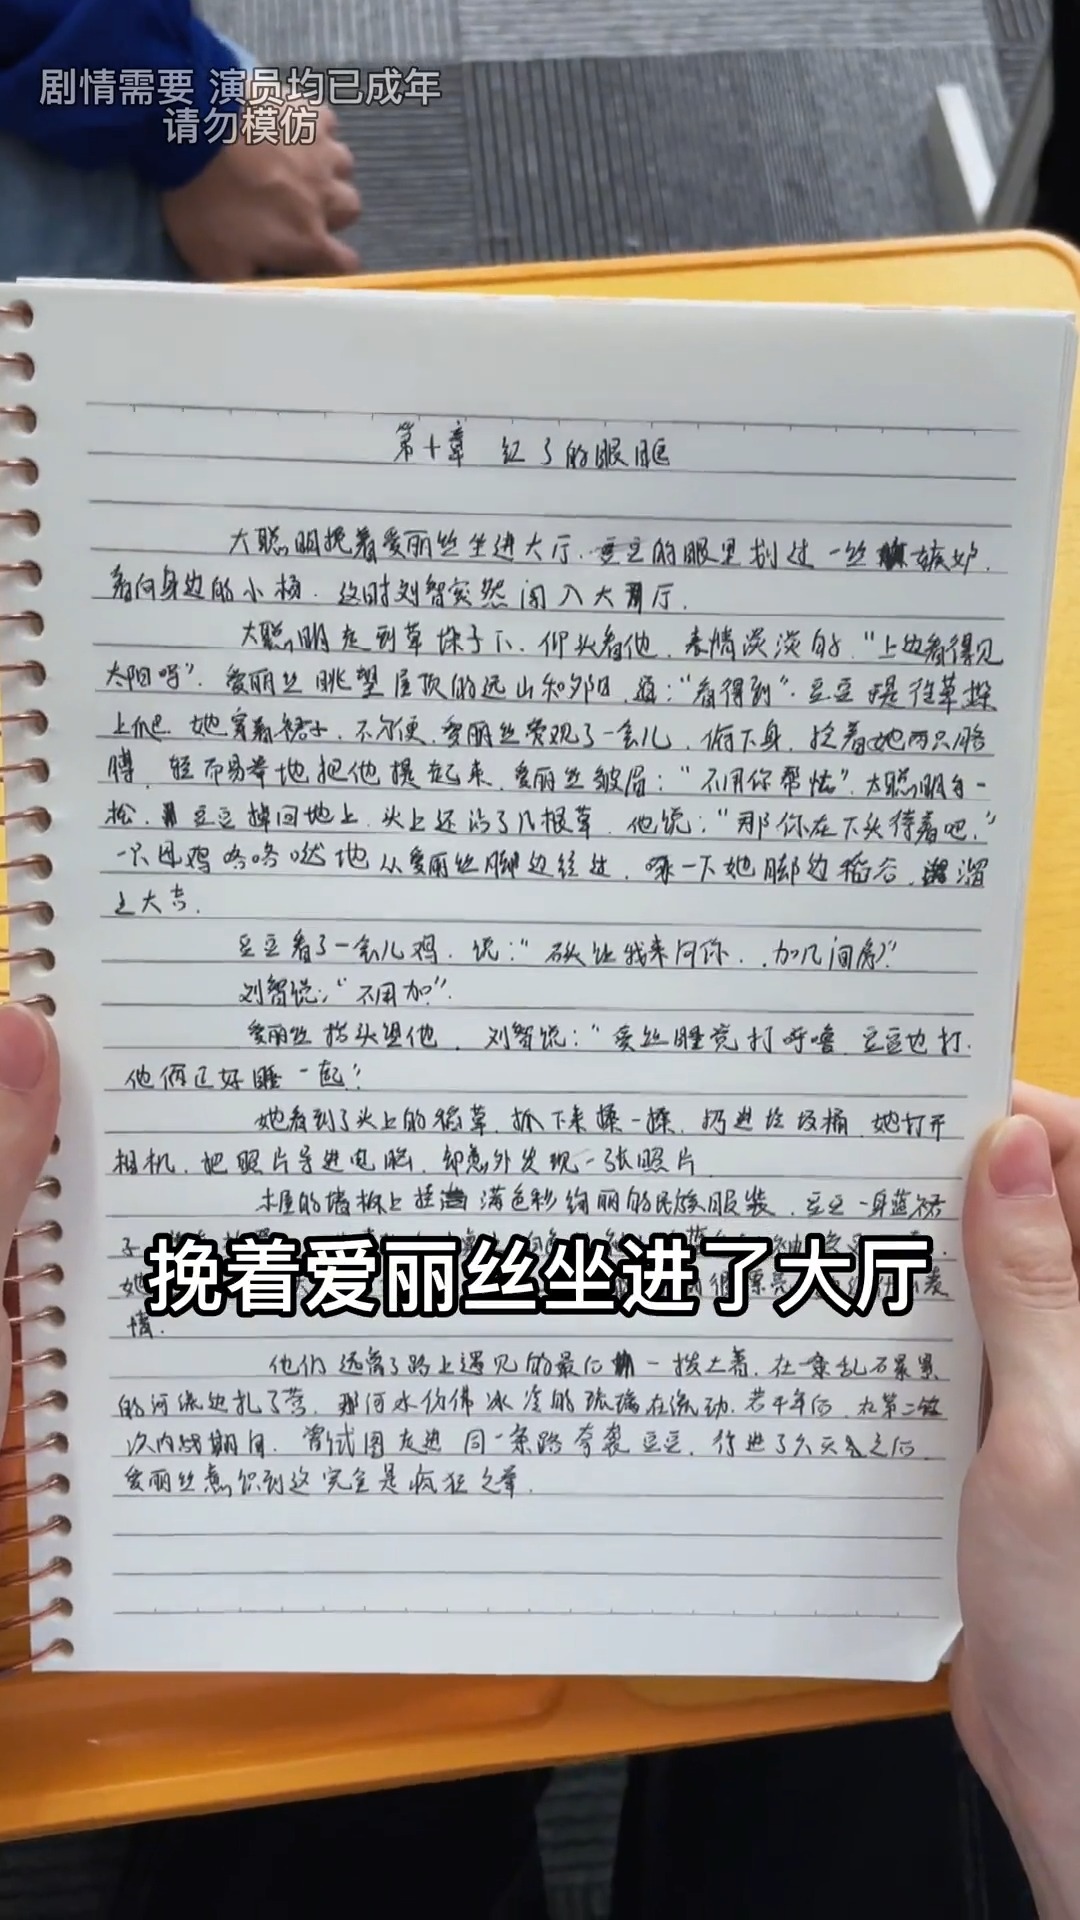 剧情需要 演员均已成年
请勿模仿
第十章 红了的眼眶
大聪明挽着爱丽丝坐进大厅.豆豆的眼里划过一丝嫉妒.
看向身边的小杨.这时刘智突然闯入大厅.
大聪明走到草垛子下.仰头看他.表情淡淡的."上边看得见
太阳吗".爱丽丝眺望屋顶的远山和夕阳.道:"看得到".豆豆于是往草垛
上爬.她穿着裙子.不方便.爱丽丝旁观了一会儿.俯下身.拉着她两只胳
膊.轻而易举地把他提起来.爱丽丝皱眉:"不用你帮忙".大聪明手一
松.豆豆掉回地上.头上还沾了几根草.他说:"那你在下头待着吧."
一只母鸡咯咯哒地从爱丽丝脚边经过.啄一下她脚边稻谷.溜
之大吉.
豆豆看了一会儿鸡.说:"石头让我来问你..加几间房?"
刘智说:"不用加".
爱丽丝抬头望他.刘智说:"爱丝睡觉打呼噜.豆豆也打.
他俩正好睡一起."
她看到了头上的稻草.抓下来揉一揉.扔进垃圾桶.她打开
相机.把照片导进电脑.却意外发现一张照片
木屋的墙板上挂满色彩绚丽的民族服装.豆豆一身蓝裙
子
挽着爱丽丝坐进了大厅
情.
他们远离了路上遇见的最后一拨土著.在一条乱石累累
的河流边扎了营.那河水仿佛冰冷的琉璃在流动.若干年后.在第二
次内战期间.曾试图走进同一条路奔袭豆豆.行进了六天之后.
爱丽丝意识到这完全是疯狂之举.